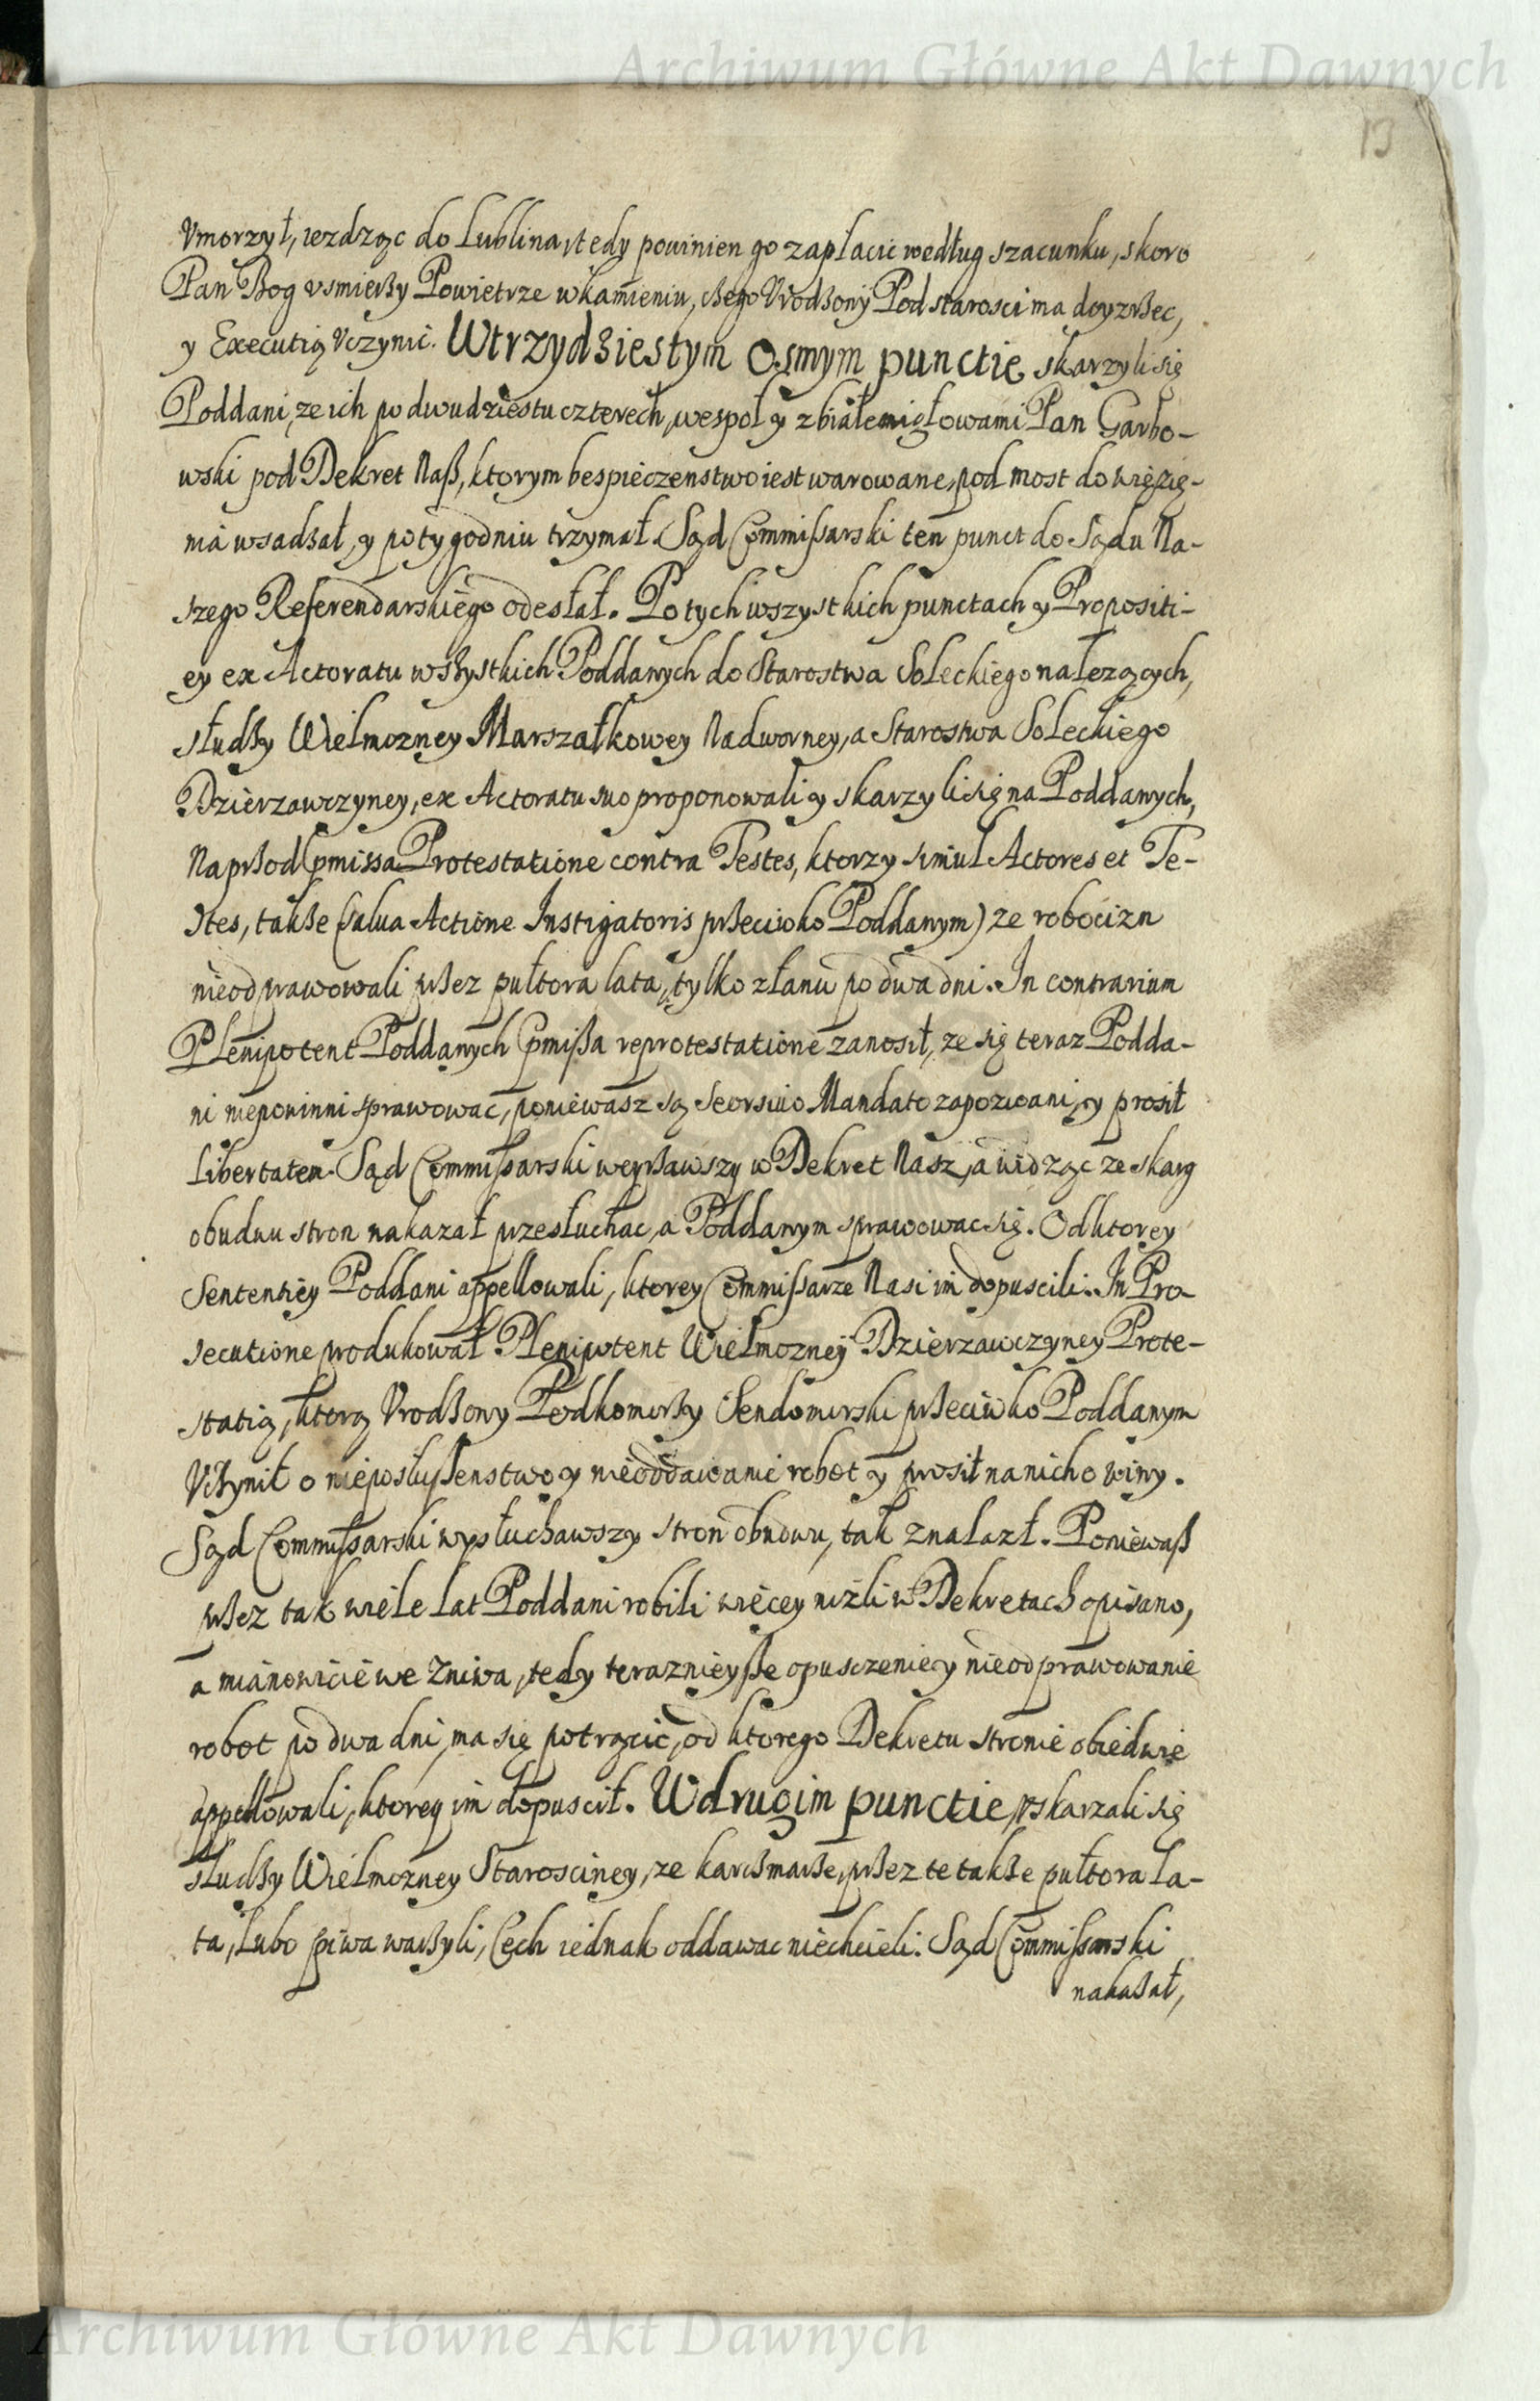 Archiwum Główne Akt Dawnych
13
Vmorzył, iezdząc do Lublina, tedy powinien go zapłacic według szacunku, skoro
Pan Bog vsmierzy Powietrze w Kamieniu, czego Vrodzony Podstarosci ma doyzrzec,
y Executią Vczynic. W trzydziestym osmym punctie skarzyli się
Poddani, ze ich po dwudziestu czterech, wespoł y z białemigłowami Pan Garbo-
wski pod Dekret Nasz, ktorym bespieczenstwo iest warowane, pod most do więzię-
nia wsadzał, y po tygodniu trzymał. Sąd Commissarski ten punct do Sądu Na-
szego Referendarskiego odesłał. Po tych wszystkich punctach y Propositi-
ey ex Actoratu wszystkich Poddanych do Starostwa Soleckiego nalezących,
słudzy Wielmozney Marszałkowey Nadworney, a Starostwa Soleckiego
Dzierzawczyney, ex Actoratu suo proponowali y skarzyli się na Poddanych,
Naprzod (pmissa Protestatione contra Testes, ktorzy simul Actores et Te-
stes, takze salua Actione Instigatoris przeciwko Poddanym) ze robocizn
nieodprawowali przez pułtora lata, tylko z łanu po dwa dni. In contrarium
Plenipotent Poddanych pmissa reprotestatione zanosił, ze się teraz Podda-
ni niepowinni sprawowac, poniewasz są seorsiuo Mandato zapozwani, y prosił
libertatem. Sąd Commissarski weyrzawszy w Dekret Nasz, a widząc ze skarg
obudwu stron nakazał przesłuchac, a Poddanym sprawowac się. Od ktorey
Sententiey Poddani appellowali, ktorey Commissarze Nasi im dopuscili. In Pro-
secutione produkował Plenipotent Wielmozney Dzierzawczyney Prote-
statią, ktorą Vrodzony Podkomorzy Sendomirski przeciwko Poddanym
Vczynił o nieposłuszenstwo y nieoddawanie robot y prosił na nich o winy.
Sąd Commissarski wysłuchawszy stron obudwu, tak znalazł. Poniewasz
przez tak wiele lat Poddani robili więcey nizli w Dekretach opisano,
a mianowicie we Zniwa, tedy teraznieysze opusczenie y nieodprawowanie
robot po dwa dni, ma się potrącic, od ktorego Dekretu stronie obiedwie
appellowali, ktorey im dopuscił. W drugim punctie, vskarzali się
słudzy Wielmozney Starosciney, ze karczmarze, przez te takze pułtora la-
ta, lubo piwa warzyli, Cech iednak oddawac niechcieli. Sąd Commissarski
nakazał,
Archiwum Główne Akt Dawnych